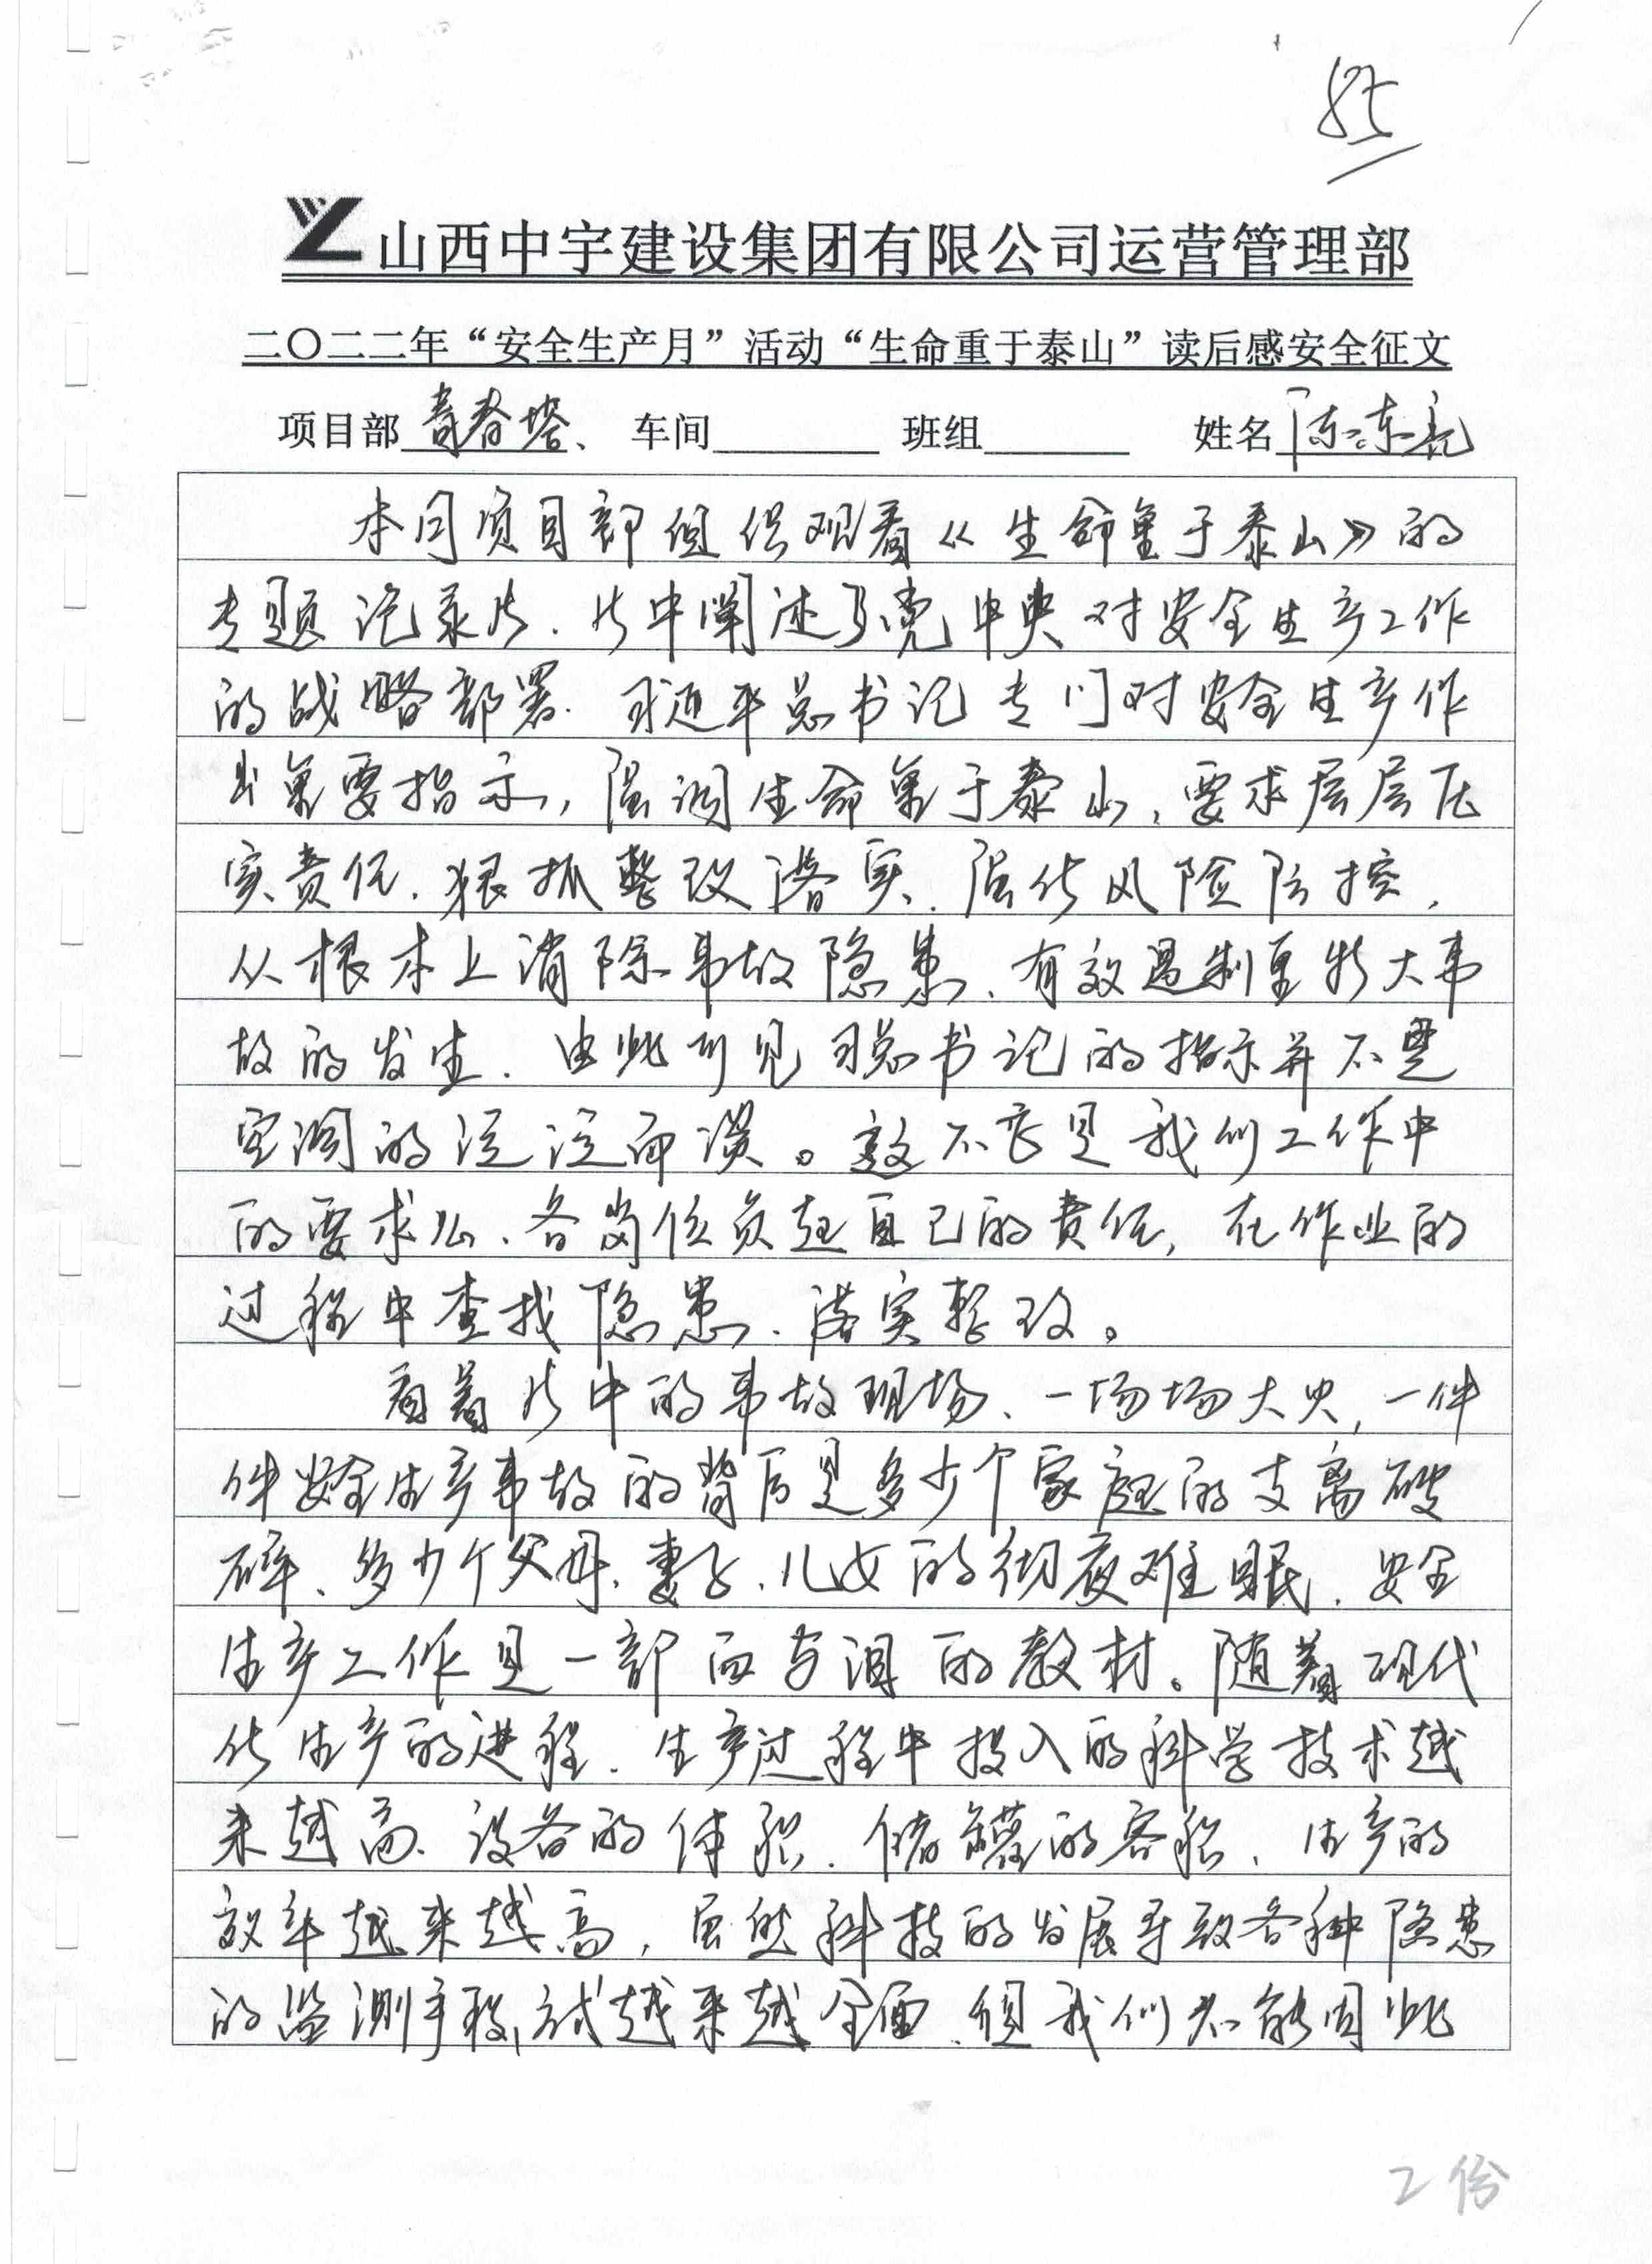 85
山西中宇建设集团有限公司运营管理部
二〇二二年“安全生产月”活动“生命重于泰山”读后感安全征文
项目部 青春塔、 车间 班组 姓名 陈东亮
本月项目部组织观看《生命重于泰山》的
专题记录片、片中阐述了党中央对安全生产工作
的战略部署. 习近平总书记专门对安全生产作
出重要指示，强调生命重于泰山、要求层层压
实责任、狠抓整改落实、强化风险防控，
从根本上消除事故隐患、有效遏制重特大事
故的发生. 由此可见习总书记的指示并不是
空洞的泛泛而谈。这不产是我们工作中
的要求么、各岗位负起自己的责任, 在作业的
过程中查找隐患、落实整改。
看着片中的事故现场、一场场大火, 一件
件安全生产事故的背后是多少个家庭的支离破
碎、多少个父母、妻子、儿女的彻夜难眠、安全
生产工作是一部血与泪的教材。随着现代
化生产的进程、生产过程中投入的科学技术越
来越高、设备的体积、储罐的容积、生产的
效率越来越高，虽然科技的发展导致各种隐患
的监测手段、方式越来越全面、但我们不能因此
2份